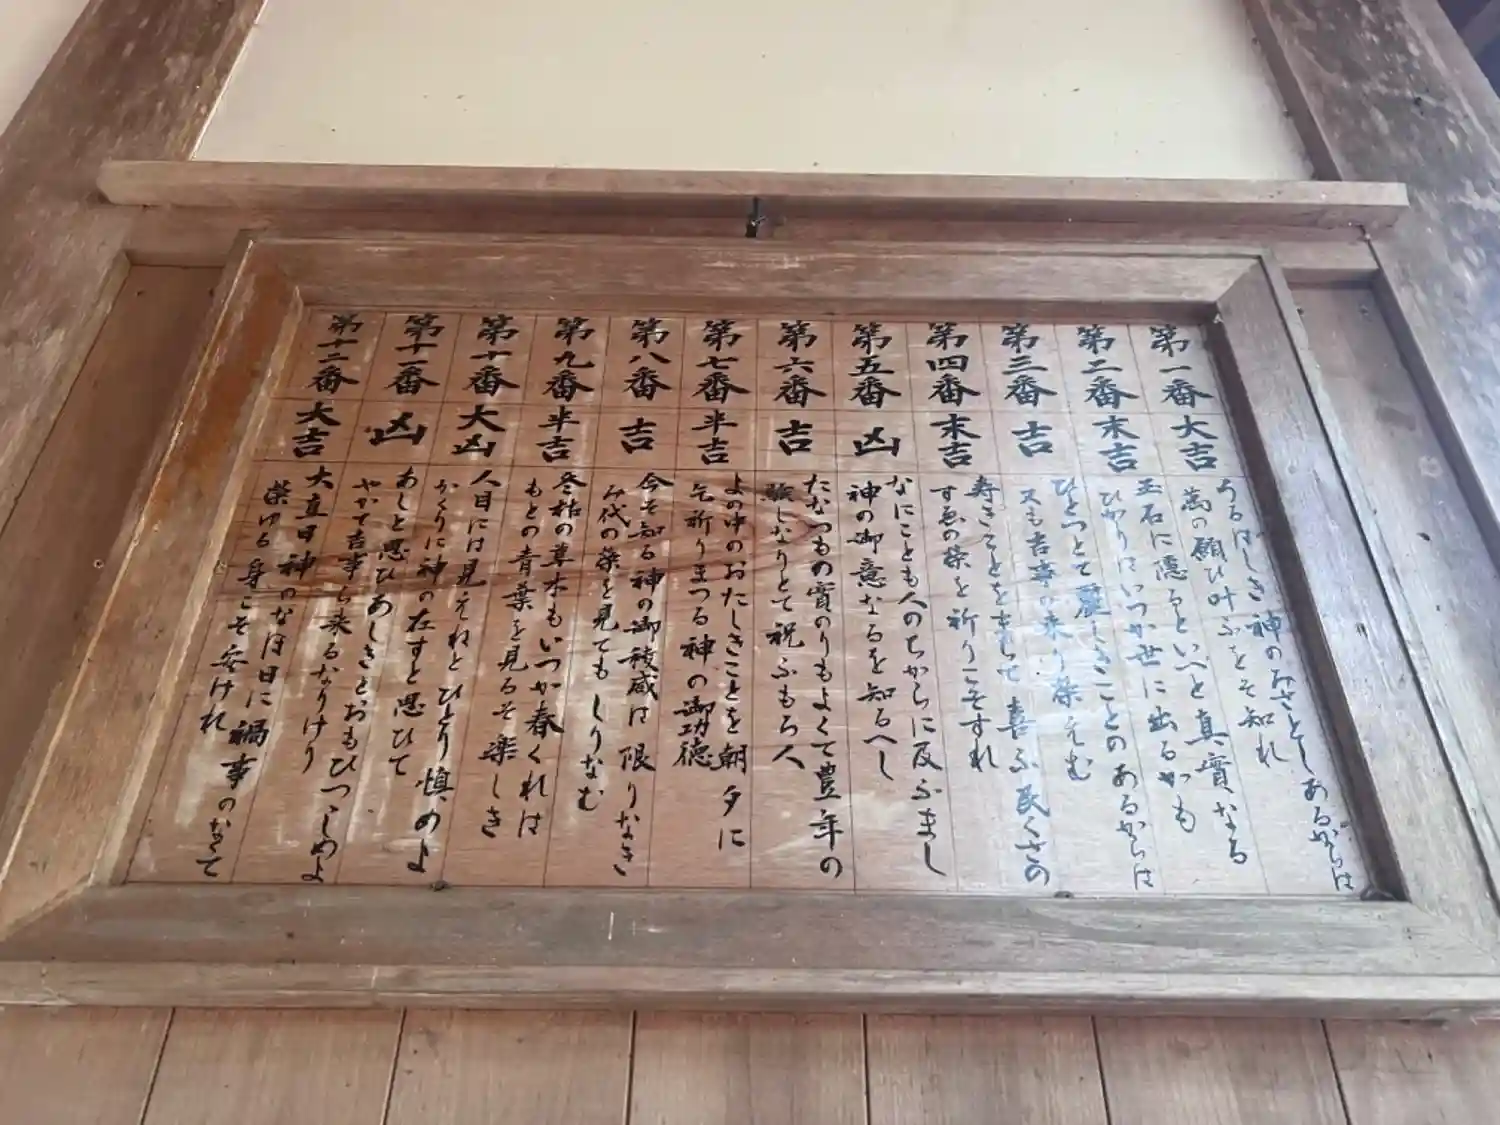 第一番
大吉
うるはしき神のみさとしあるからは
萬の願ひ叶ふとそ知れ
第二番
末吉
玉石に隠るといへと真實なる
ひかりはいつか世に出るかも
第三番
吉
ひとつとて麗しきことのあるからは
又も吉事の来り榮えむ
第四番
末吉
寿きことを 喜ふ民くさの
すゑの榮を祈りこそすれ
第五番
凶
なにことも人のちからに及ふまし
神の御意なるを知るへし
第六番
吉
たなつもの實のりもよくて豊年の
しなりとて祝ふもろ人
第七番
半吉
よの中のおたしきことを朝夕に
乞祈りまつる神の御功徳
第八番
吉
今そ知る神の御稜威は限りなき
み代の榮を見てもしりなむ
第九番
半吉
冬枯の草木もいつか春くれは
もとの青葉を見るそ楽しき
第十番
大凶
人目には見えねとひとり慎めよ
かくりに神の在すと思ひて
第十一番
凶
あしと思ひあしきとおもひつゝしめよ
やかて吉事も来るなりけり
第十二番
大吉
大直日神のなほ日に禍事のなくて
榮ゆる身こそ安けれ